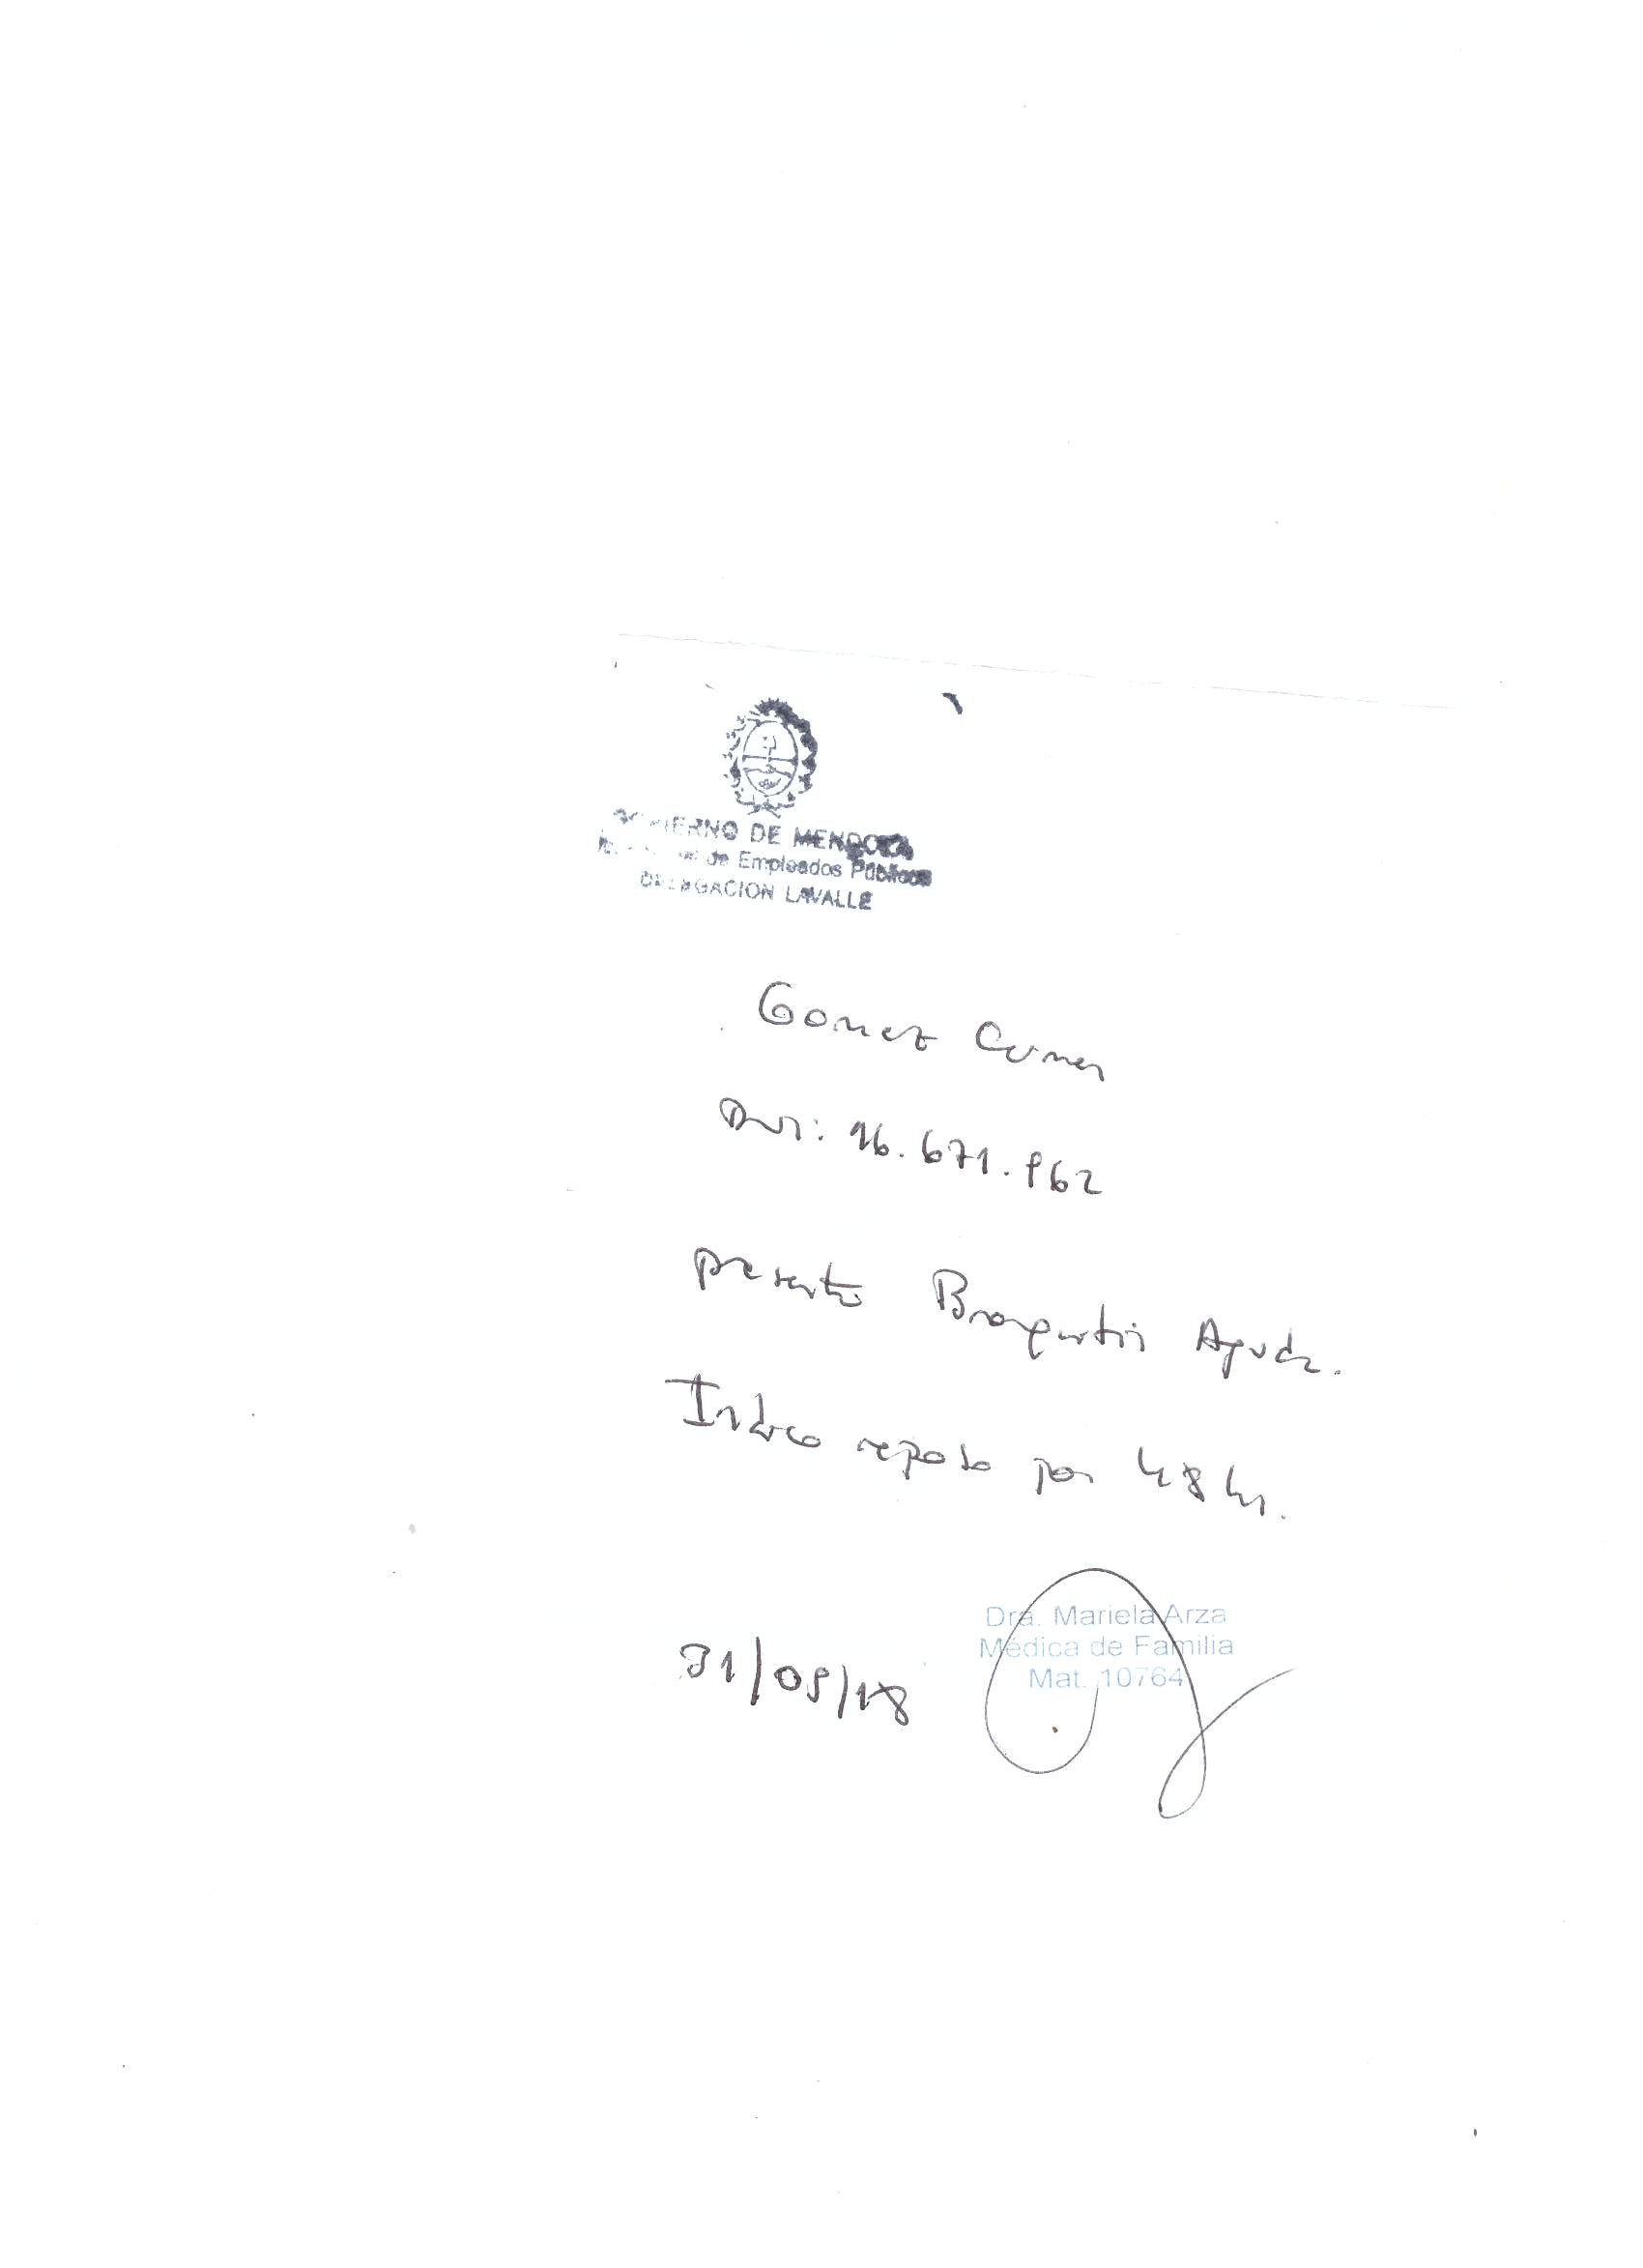 GOBIERNO DE MENDOZA
de Empleados Públicos
DELEGACION LAVALLE
Gomez
DNI: 16.671.962
presenta Broncoquitis Aguda.
Indico reposo por 48 hs.
Dra. Mariela Arza
Médica de Familia
Mat. 10764
31/08/18